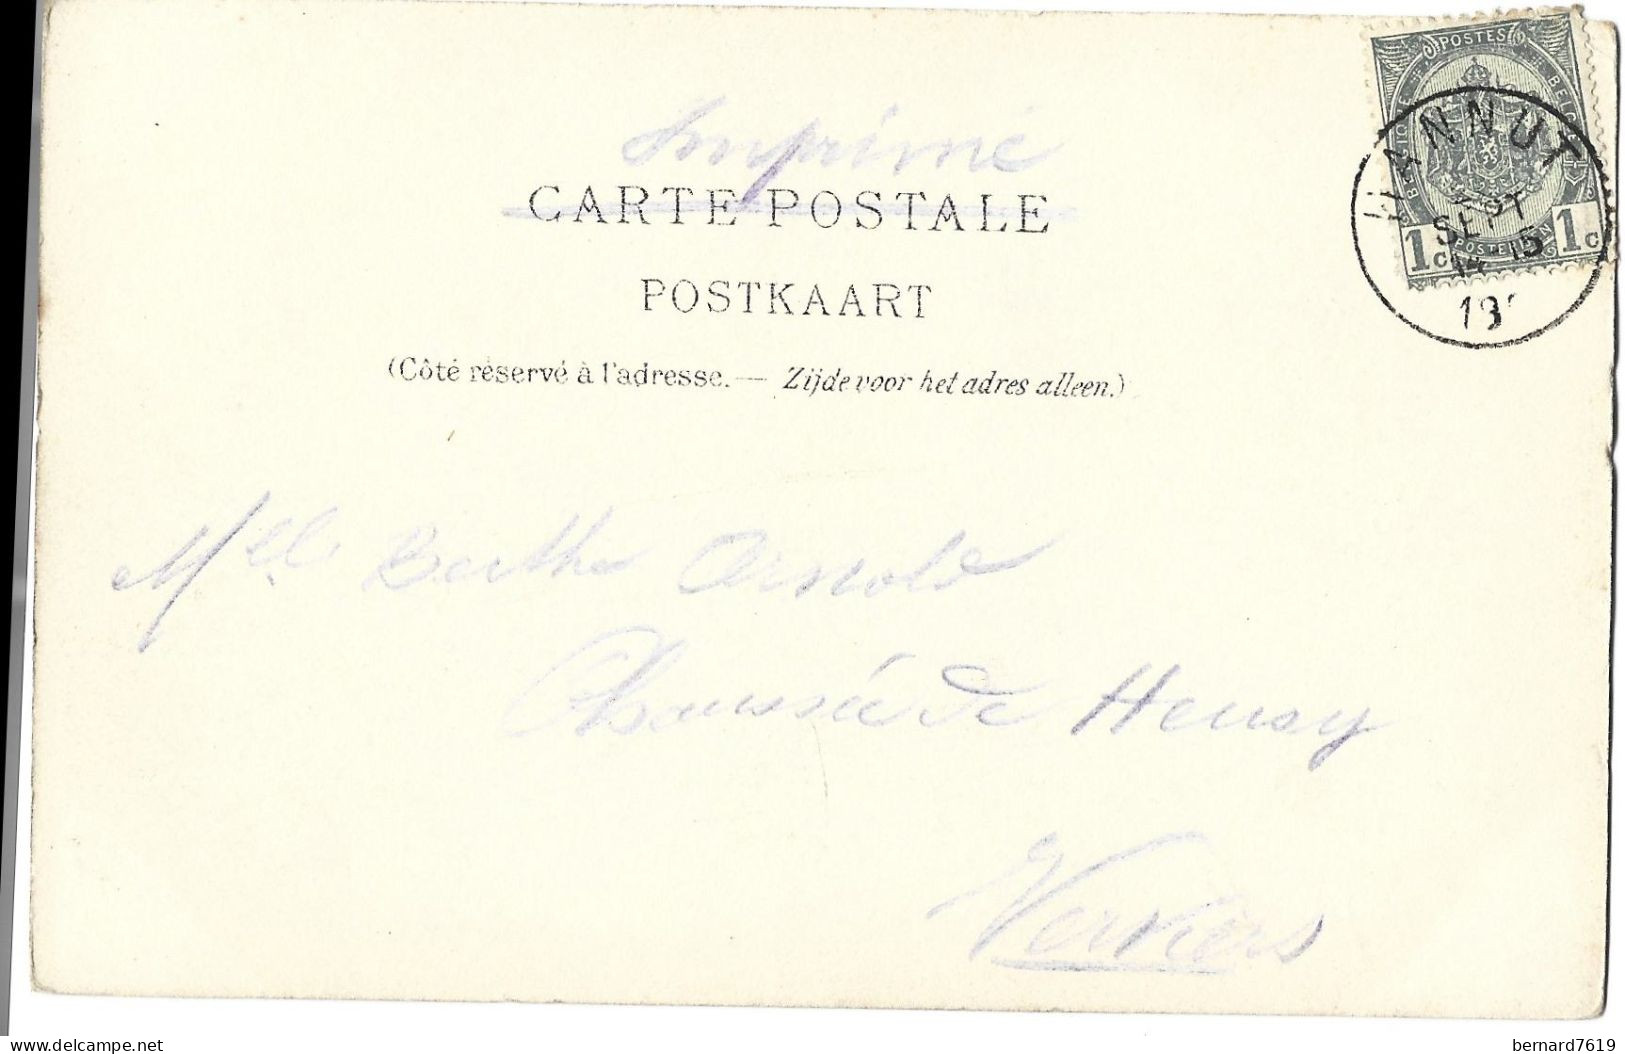 POSTES
BELGIQUE BELGIE
1c 1c
POSTERIJEN
HANNUT
SEPT
Imprimé
CARTE POSTALE
POSTKAART
(Côté réservé à l'adresse. — Zijde voor het adres alleen.)
Mlle Berthe Arnold
Chaussée de Heusy
Verviers
bernard7619